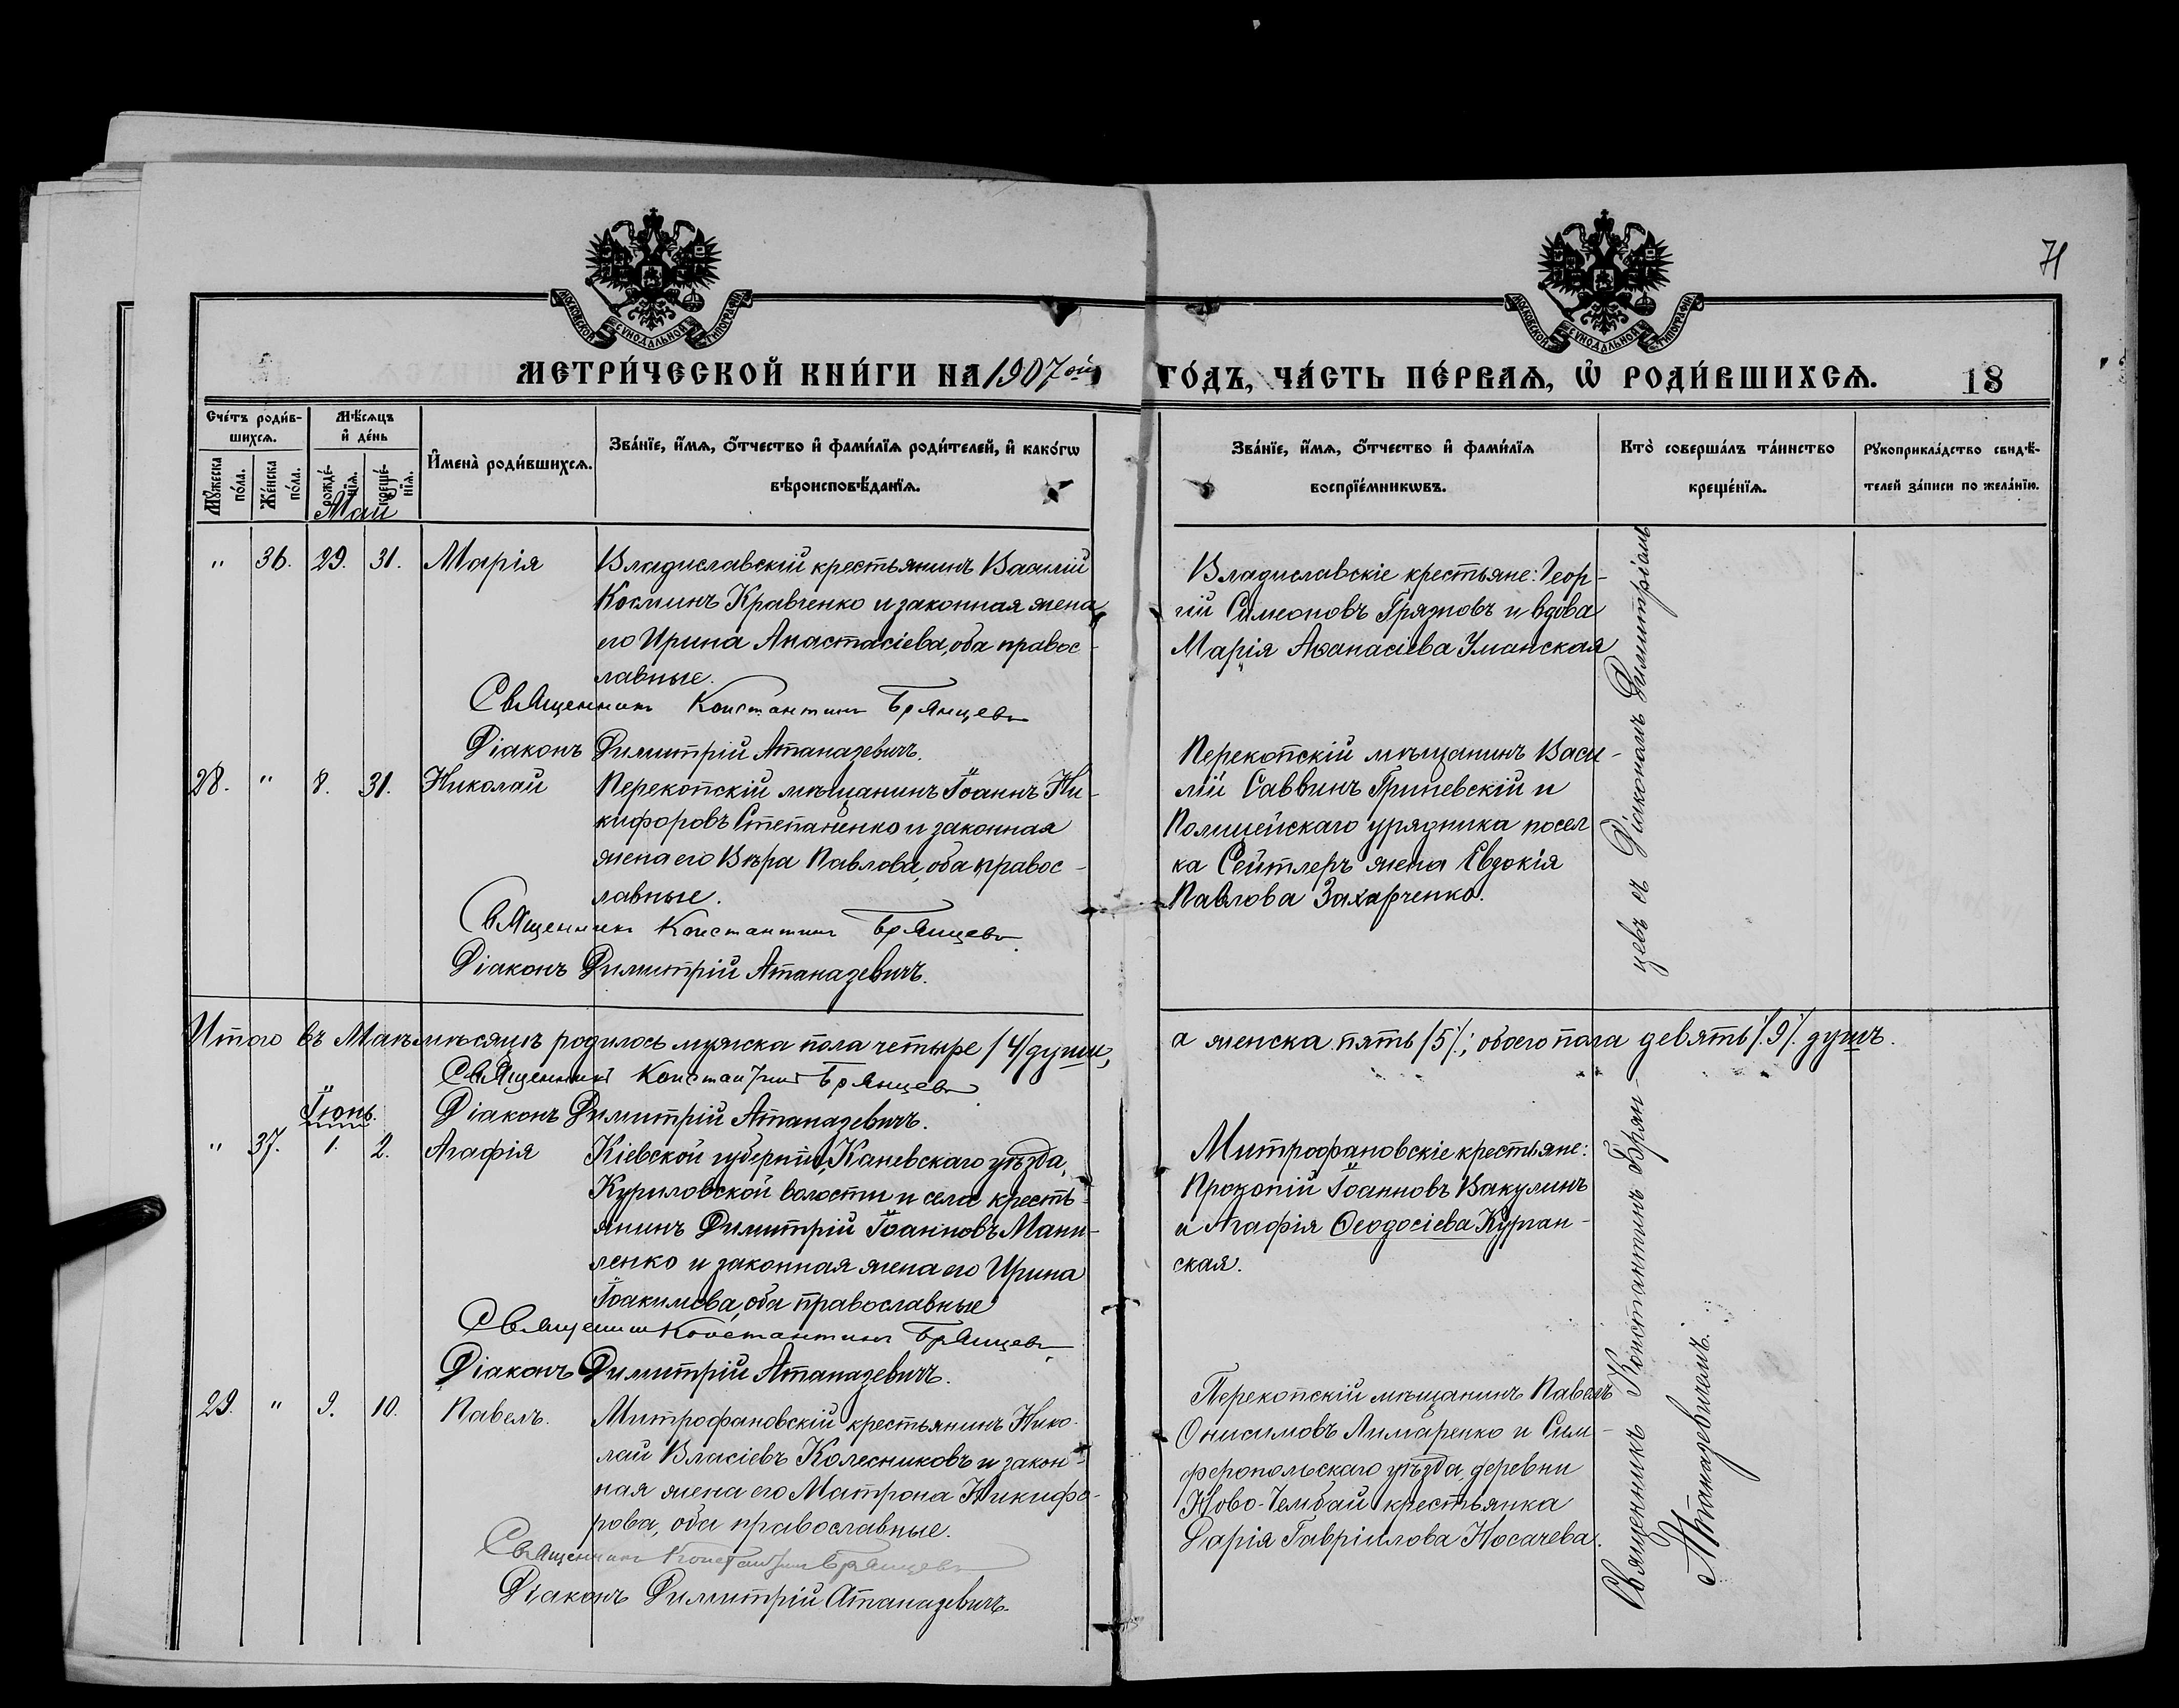 71
МОСКОВСКОЙ СѴНОДАЛЬНОЙ ТИПОГРАФІИ
МОСКОВСКОЙ СѴНОДАЛЬНОЙ ТИПОГРАФІИ
МЕТРИ́ЧЕСКОЙ КНИ́ГИ НА 1907ой ГО́ДЪ, ЧА́СТЬ ПЕ́РВАѦ, Ѡ҆ РОДИ́ВШИХСѦ.
18
Сче́тъ роди́в-
шихсѧ.
Мѣ́сѧцъ
и҆ де́нь
Мꙋ́жеска по́ла.
Же́нска по́ла.
рожде́-
нїѧ.
креще́-
нїѧ.
И҆мена̀ роди́вшихсѧ.
Зва́нїе, и҆́мѧ, ѻ҆́тчество и҆ фами́лїѧ роди́телей, и҆ како́гѡ
вѣроисповѣ́данїѧ.
Зва́нїе, и҆́мѧ, ѻ҆́тчество и҆ фами́лїѧ
воспрїе́мникѡвъ.
Кто̀ соверша́лъ та́инство
креще́нїѧ.
Рꙋкоприкла́дство свидѣ́-
телей за́писи по жела́нїю.
Май
" 36. 29. 31. Марія
Владиславскій крестьянинъ Василій
Косминъ Кравченко и законная жена
его Ирина Анастасіева, оба правос-
лавные.
Священникъ Константинъ Брянцевъ
Діаконъ Димитрій Атаназевичъ.
Владиславскіе крестьяне: Геор-
гій Симеоновъ Грязновъ и вдова
Марія Аѳанасіева Уманская
28. " 8. 31. Николай
Перекопскій мѣщанинъ Іоаннъ Ни-
кифоровъ Степаненко и законная
жена его Вѣра Павлова, оба правос-
лавные.
Священникъ Константинъ Брянцевъ
Діаконъ Димитрій Атаназевичъ.
Перекопскій мѣщанинъ Васи-
лій Саввинъ Гриневскій и
Полицейскаго урядника посел
ка Сейтлеръ жена Евдокія
Павлова Захарченко.
Итого въ Маѣ мѣсяцѣ родилось мужска пола четыре /4/ души, а женска пять /5/; обоего пола девять /9/ душъ.
Священникъ Константинъ Брянцевъ
Діаконъ Димитрій Атаназевичъ.
Іюнь.
" 37. 1. 2. Агафія
Кіевской губерніи, Каневскаго уѣзда,
Куриловской волости и села кресть-
янинъ Димитрій Іоанновъ Мани-
ленко и законная жена его Ирина
Іоакимова, оба православные
Священникъ Константинъ Брянцевъ
Діаконъ Димитрій Атаназевичъ.
Митрофановскіе крестьяне:
Прокопій Іоанновъ Вакулинъ
и Агафія Ѳеодосіева Курган-
ская.
29. " 9. 10. Павелъ.
Митрофановскій крестьянинъ Нико-
лай Власіевъ Колесниковъ и закон-
ная жена его Матрона Никифо-
рова, оба православные.
Священникъ Константинъ Брянцевъ
Діаконъ Димитрій Атаназевичъ.
Перекопскій мѣщанинъ Павелъ
Онисимовъ Лимаренко и Сим-
феропольскаго уѣзда, деревни
Ново-Чембай крестьянка
Дарія Гавріилова Носачева.
Священникъ Константинъ Брян-
цевъ съ Діакономъ Димитріемъ
Атаназевичемъ.